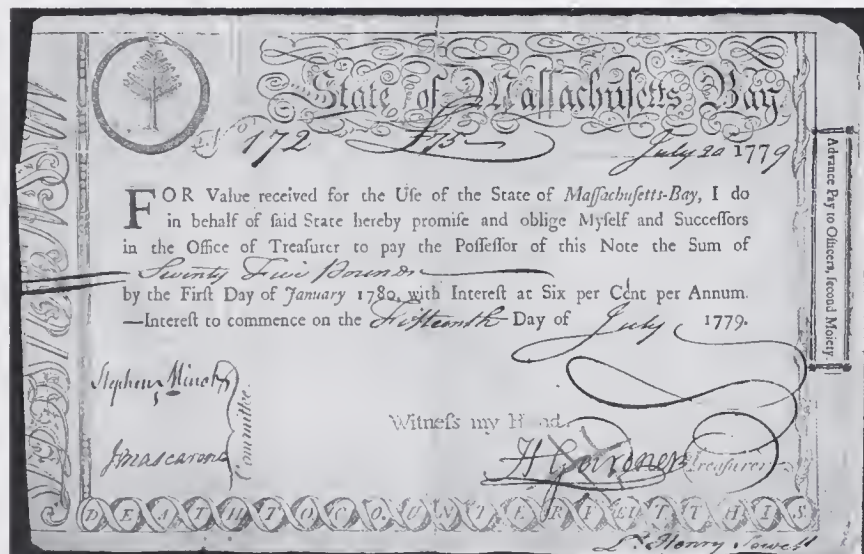 State of Maſſachuſetts Bay
172 £75 July 20 1779
FOR Value received for the Uſe of the State of Maſſachuſetts-Bay, I do
in behalf of ſaid State hereby promiſe and oblige Myſelf and Succeſſors
in the Office of Treaſurer to pay the Poſſeſſor of this Note the Sum of
Seventy Five Pounds
by the Firſt Day of January 1780, with Intereſt at Six per Cent per Annum.
—Intereſt to commence on the Fifteenth Day of July 1779.
Stephen Minot
J Mascarene
Committee.
Witneſs my Hand,
H Gardner Treaſurer
DEATH TO COUNTERFEIT THIS
Lt. Henry Sewell
Advance Pay to Officers, ſecond Moiety.